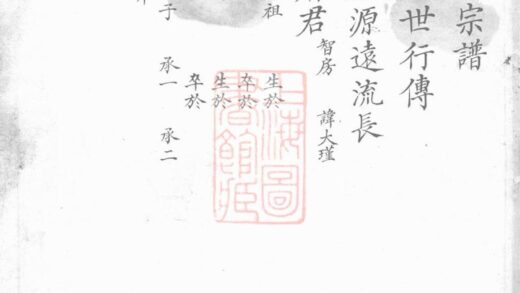 宗譜
世行傳
源遠流長
君 智房 諱大瑾
祖
生於
卒於
生於
卒於
子 承一 承二
上海圖
書館藏